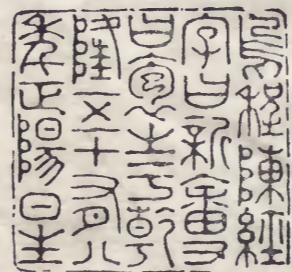 烏程陳經
字曰新畬又
曰之乾
隆五十有八
年正陽日生